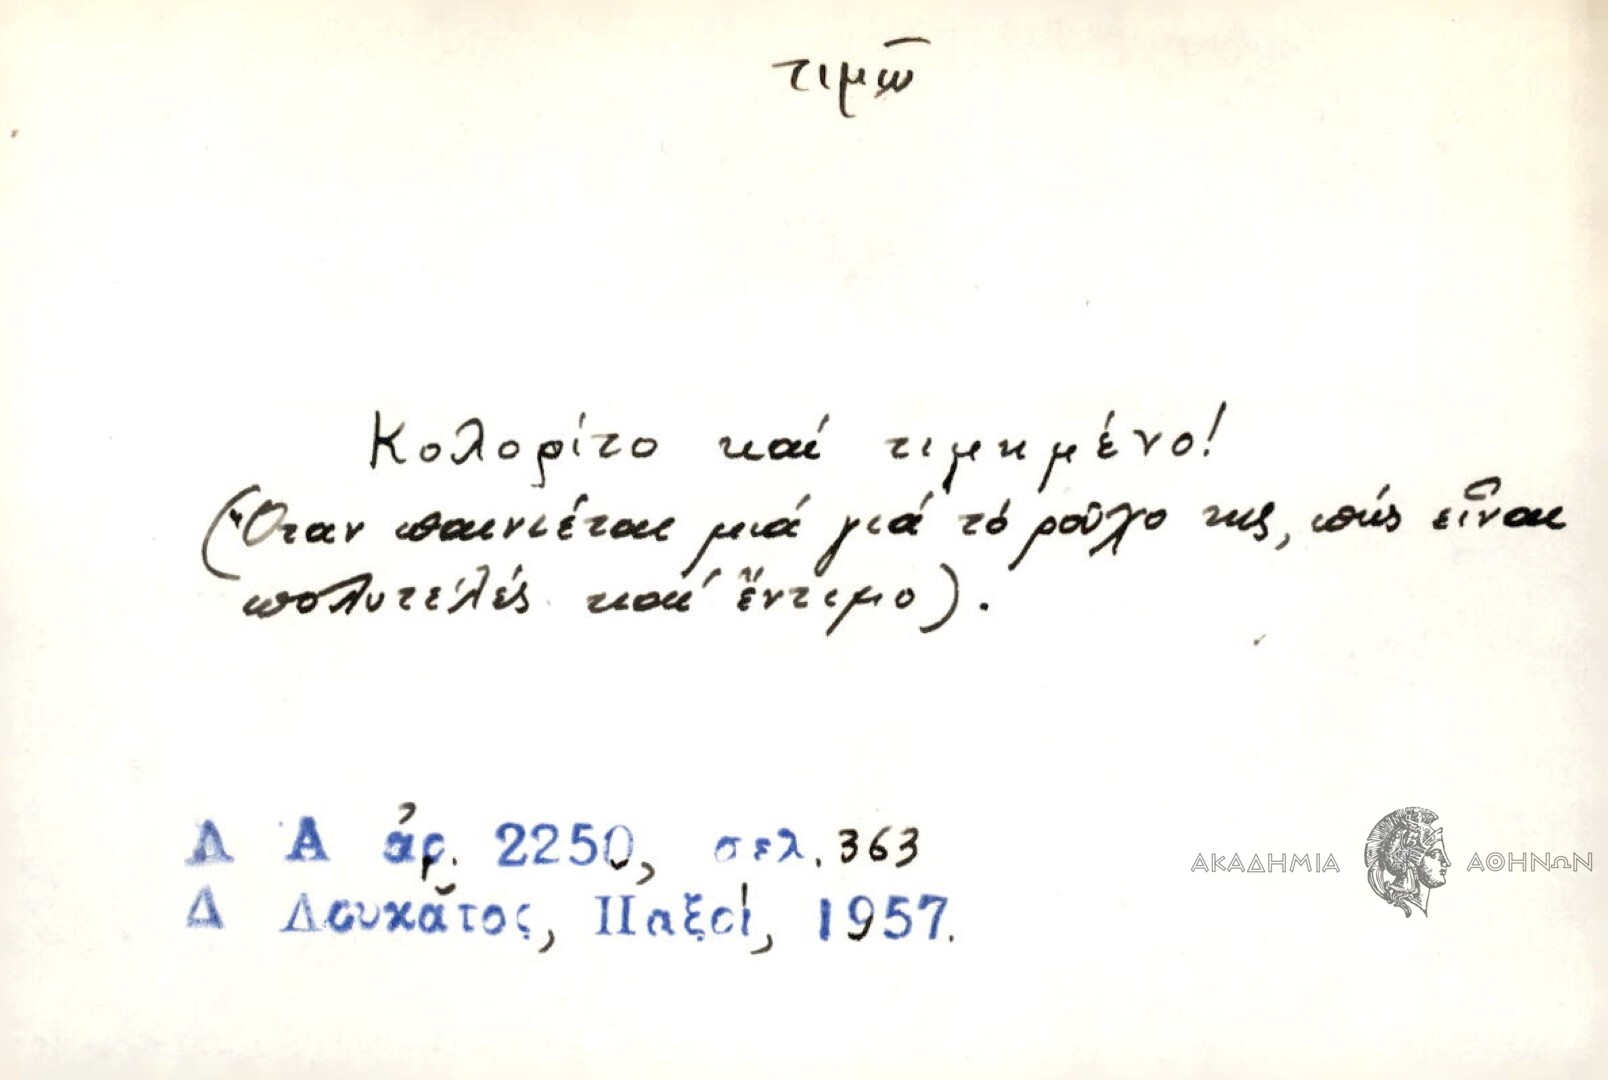 τιμῶ
Κολορίτο καί τιμημένο!
(Ὅταν παινιέται μιά γιά τό ροῦχο της, πώς εἶναι
πολυτελές καί ἔντιμο).
Λ Α ἀρ. 2250, σελ. 363
Δ Λουκᾶτος, Παξοί, 1957.
ΑΚΑΔΗΜΙΑ ΑΘΗΝΩΝ